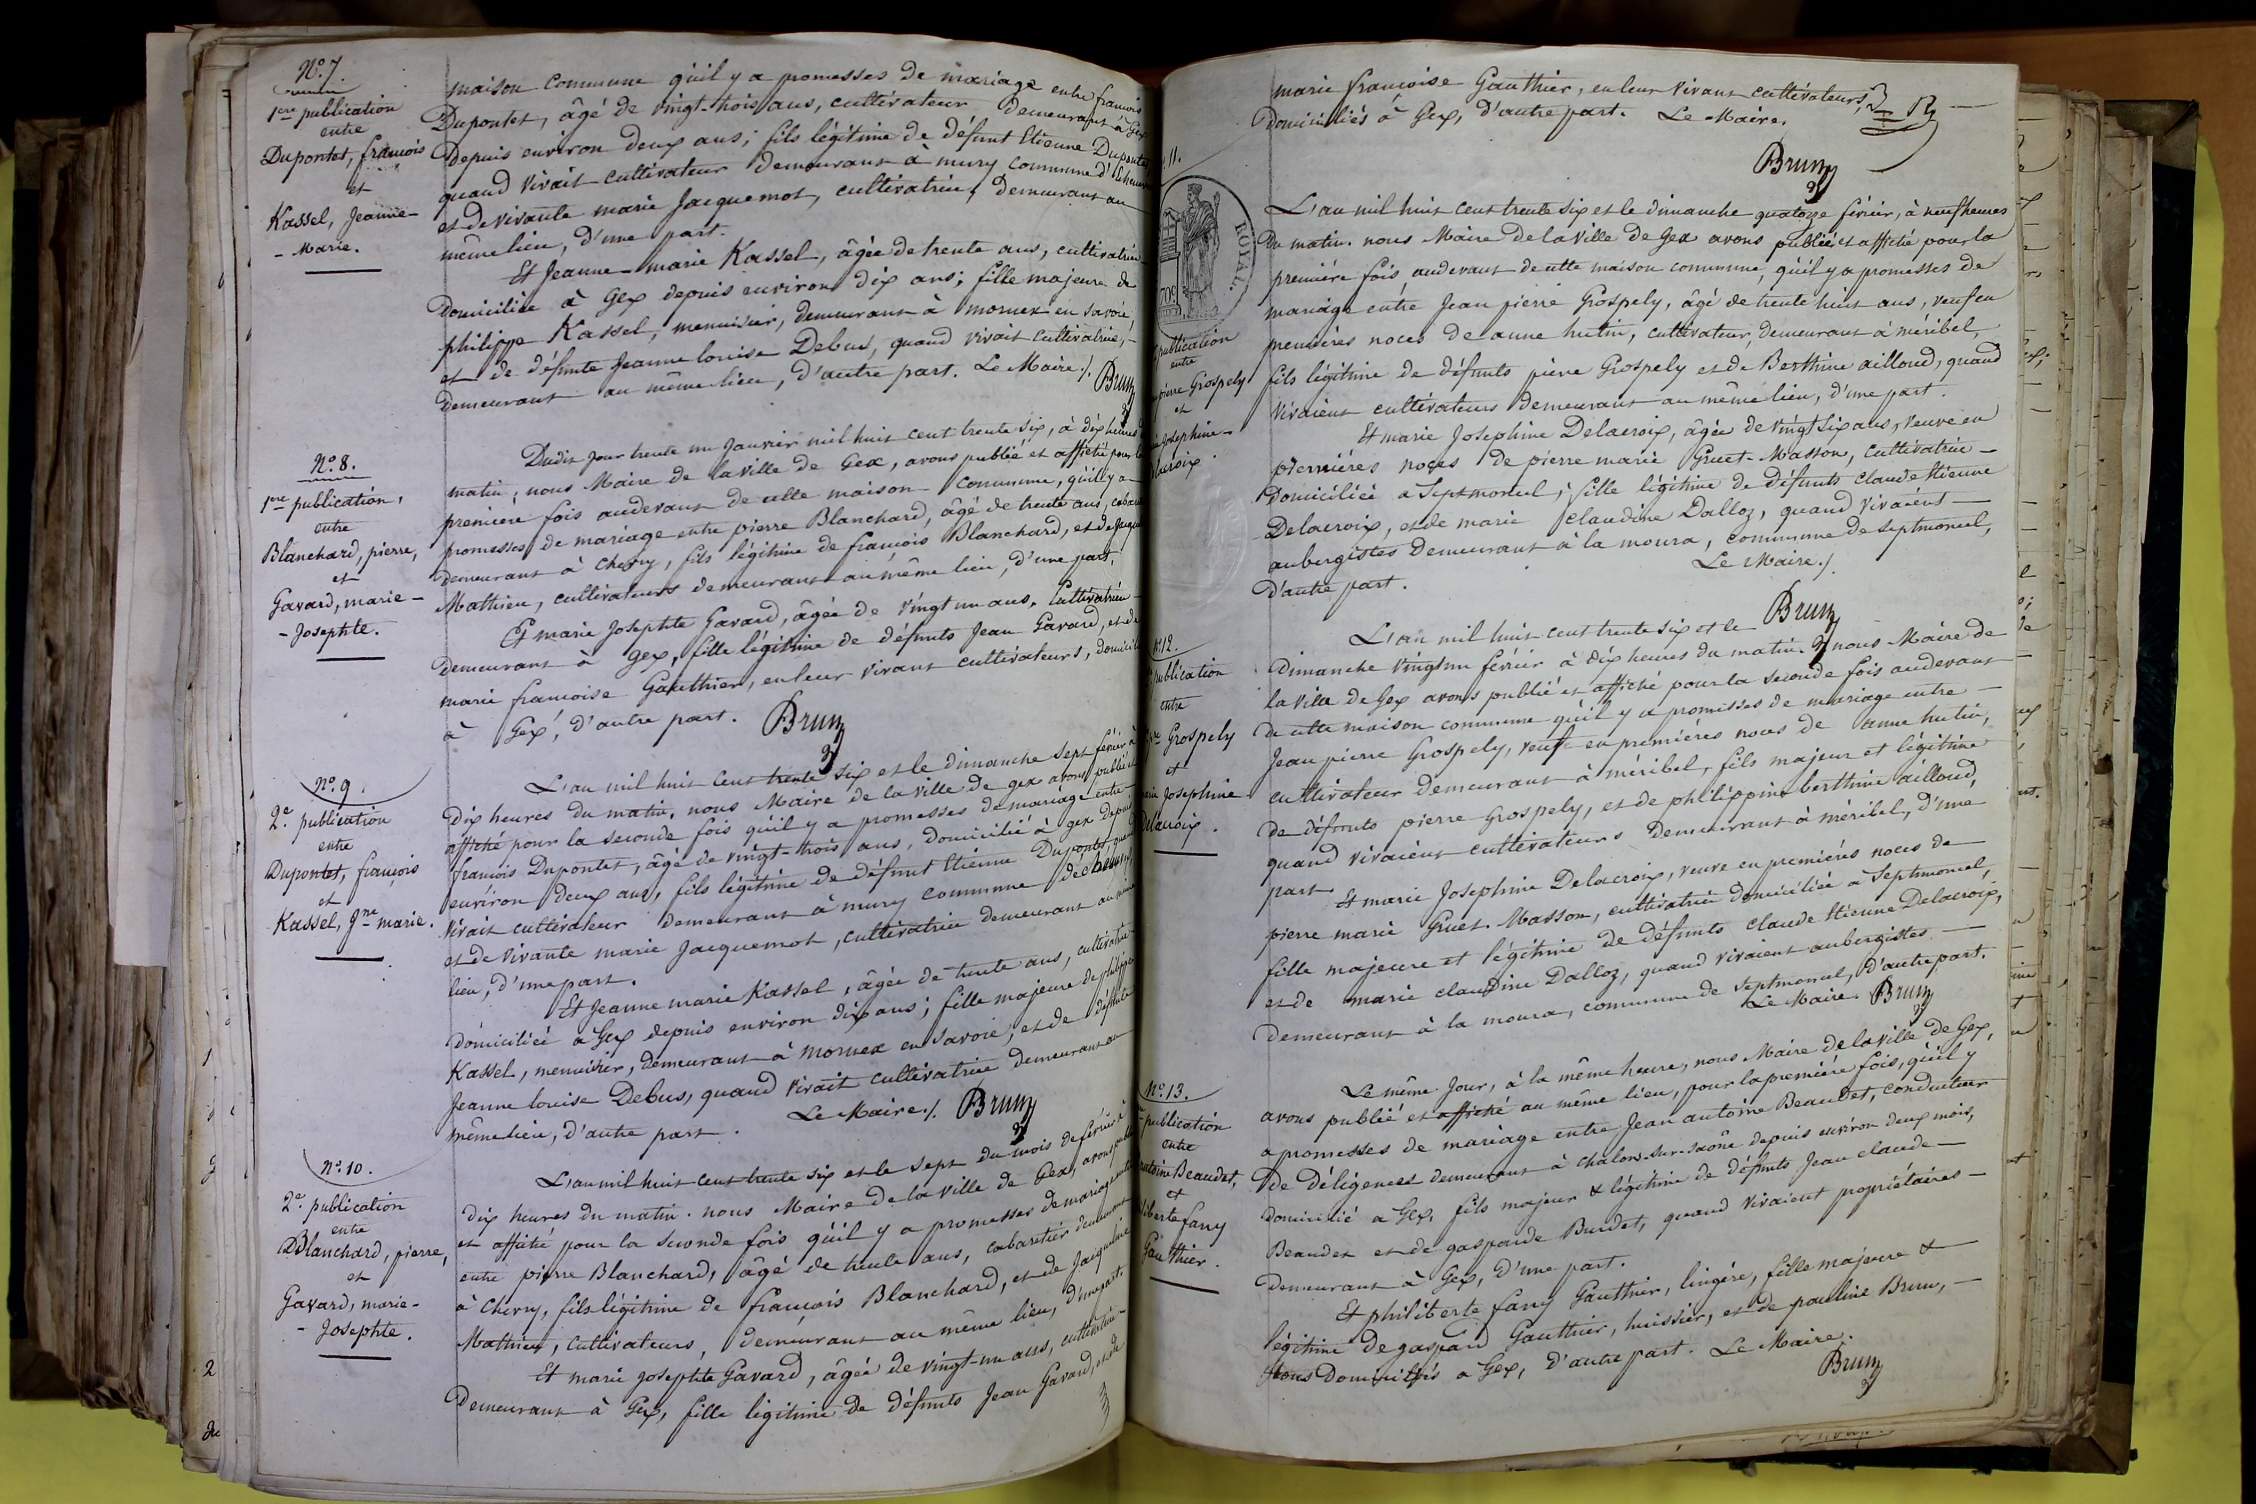 N.º 7.
1ere publication
entre
Dupontet, françois
et
Kassel, Jeanne-
- Marie.
maison commune qu'il y a promesses de mariage entre françois
Dupontet, âgé de vingt-trois ans, cultivateur demeurant à Gex
depuis environ deux ans; fils légitime de défunt Etienne Dupontet
quand vivait cultivateur demeurant à mury commune d'
et de vivante marie Jacquemot, cultivatrice, demeurant au
même lieu, d'une part.
Et Jeanne-marie Kassel, âgée de trente ans, cultivatrice
domiciliée à Gex depuis environ dix ans; fille majeure de
philippe Kassel, menuisier, demeurant à mornex en savoie,
et de défunte Jeanne louise Debus, quand vivait cultivatrice,
demeurant au même lieu, d'autre part. Le Maire /. Brun
N.º 8.
1ere publication,
entre
Blanchard, pierre,
et
Gavard, marie-
- Josephte.
Dudit jour trente un Janvier mil huit cent trente six, à dix heures
matin; nous Maire de la ville de Gex, avons publié et affiché pour la
première fois audevant de cette maison commune, qu'il y a
promesses de mariage entre pierre Blanchard, âgé de trente ans,
demeurant à Chevry, fils légitime de françois Blanchard, et de
Mathieu, cultivateurs demeurant au même lieu, d'une part,
Et marie Josephte Gavard, âgée de vingt un ans, Cultivatrice
demeurant à Gex, fille légitime de défunts Jean Gavard, et de
marie françoise Gauthier, en leur vivant cultivateurs,
à Gex, d'autre part. Brun
N.º 9.
2.e publication
entre
Dupontet, françois
et
Kassel, Jne marie.
L'an mil huit cent trente six et le dimanche sept février à
dix heures du matin, nous Maire de la ville de gex avons publié et
affiché pour la seconde fois qu'il y a promesses de mariage entre
françois Dupontet, âgé de vingt-trois ans, domicilié à gex depuis
environ deux ans, fils légitime de défunt Etienne Dupontet, quand
vivait cultivateur demeurant à mury commune
et de vivante marie Jacquemot, cultivatrice demeurant au même
lieu, d'une part.
Et Jeanne marie Kassel, âgée de trente ans, cultivatrice
domiciliée à Gex depuis environ dix ans; fille majeure de philippe
Kassel, menuisier, demeurant à mornex en savoie, et de défunte
Jeanne louise Debus, quand vivait cultivatrice demeurant au
même lieu, d'autre part. Le Maire /. Brun
N.º 10.
2.e publication
entre
Blanchard, pierre,
et
Gavard, marie-
- Josephte.
L'an mil huit cent trente six et le sept du mois de février à
dix heures du matin. nous Maire de la ville de Gex, avons publié
et affiché pour la seconde fois qu'il y a promesses de mariage entre
entre pierre Blanchard, âgé de trente ans, cabaretier demeurant
à Chevry, fils légitime de françois Blanchard, et de Jacqueline
Mathieu, cultivateurs, demeurant au même lieu, d'une part.
Et marie josephte Gavard, âgée de vingt-un ans, cultivatrice
demeurant à Gex, fille légitime de défunts Jean Gavard, et de
marie françoise Gauthier, en leur vivant cultivateurs,
domiciliés à Gex, d'autre part. Le Maire.
Brun
11.
ROYAL.
70c
publication
entre
pierre Grospely
et
Josephine-
lacroix.
L'an mil huit cent trente six et le dimanche quatorze février, à neuf heures
du matin. nous Maire de la ville de Gex avons publié et affiché pour la
première fois audevant de cette maison commune, qu'il y a promesses de
mariage entre Jean pierre Grospely, âgé de trente huit ans, veuf en
premières noces de anne hutin, cultivateur, demeurant à méribel,
fils légitime de défunts pierre Grospely et de Berthine ailloud, quand
vivaient cultivateurs demeurant au même lieu, d'une part.
Et marie Josephine Delacroix, âgée de vingt six ans, veuve en
premières noces de pierre marie Gruet-Masson, cultivatrice
domiciliée à Septmoncel; fille légitime de défunts claude Etienne
Delacroix, et de marie claudine Dalloz, quand vivaient
aubergistes demeurant à la moura, commune de septmoncel,
d'autre part. Le Maire /.
Brun
N.º 12.
publication
entre
Grospely
et
Josephine
Delacroix.
L'an mil huit cent trente six et le
dimanche vingt un février à dix heures du matin. nous Maire de
la ville de Gex avons publié et affiché pour la seconde fois audevant
de cette maison commune qu'il y a promesses de mariage entre
Jean pierre Grospely, veuf en premières noces de anne hutin,
cultivateur demeurant à méribel, fils majeur et légitime
de défunts pierre Grospely, et de philippine berthine ailloud,
quand vivaient cultivateurs demeurant à méribel, d'une
part Et marie Josephine Delacroix, veuve en premières noces de
pierre marie Gruet-Masson, cultivatrice domiciliée à Septmoncel,
fille majeure et légitime de défunts claude Etienne Delacroix,
et de marie claudine Dalloz, quand vivaient aubergistes
demeurant à la moura, commune de septmoncel, d'autre part.
Le Maire. Brun
N.º 13.
publication
entre
antoine Beaudet,
et
liberte fany
Gauthier.
Le même Jour, à la même heure, nous Maire de la ville de Gex,
avons publié et affiché au même lieu, pour la première fois, qu'il y
a promesses de mariage entre Jean antoine Beaudet, conducteur
de déligences demeurant à chalon-sur-saône depuis environ deux mois,
domicilié à Gex, fils majeur & légitime de défunts Jean claude
Beaudet et de gasparde Burdet, quand vivaient propriétaires
demeurant à Gex, d'une part.
Et philiberte fany Gauthier, lingère, fille majeure &
légitime de gaspard Gauthier, huissier, et de pauline Brun,
tous domiciliés à Gex, d'autre part. Le Maire.
Brun